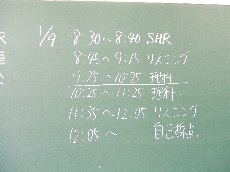 1/9 8:30~8:40 SHR
8:45~9:15 リスニング
9:25~10:25 理科
10:25~11:25 理科
11:35~12:05 リスニング
12:05~ 自己採点